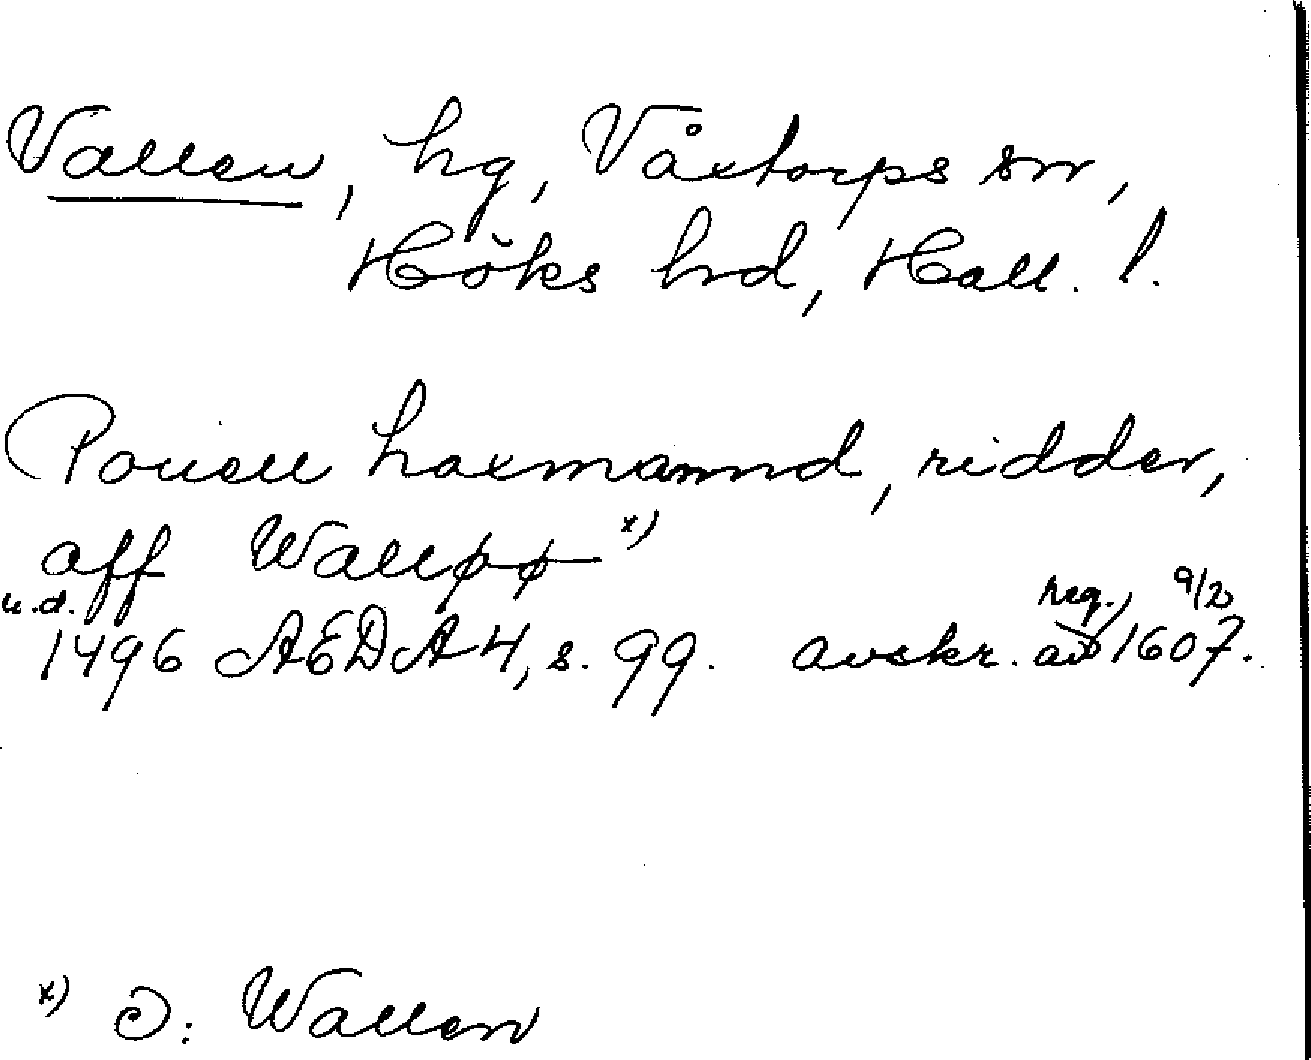 Vallen, hg, Våxtorps sn,
Höks hd, Hall. l.
Pouell haxmannd, ridder,
aff Walløø x)
u.d. reg., 9/20
1496 AEDA 4, s. 99. avskr. av 1607.
x) ɔ: Wallen